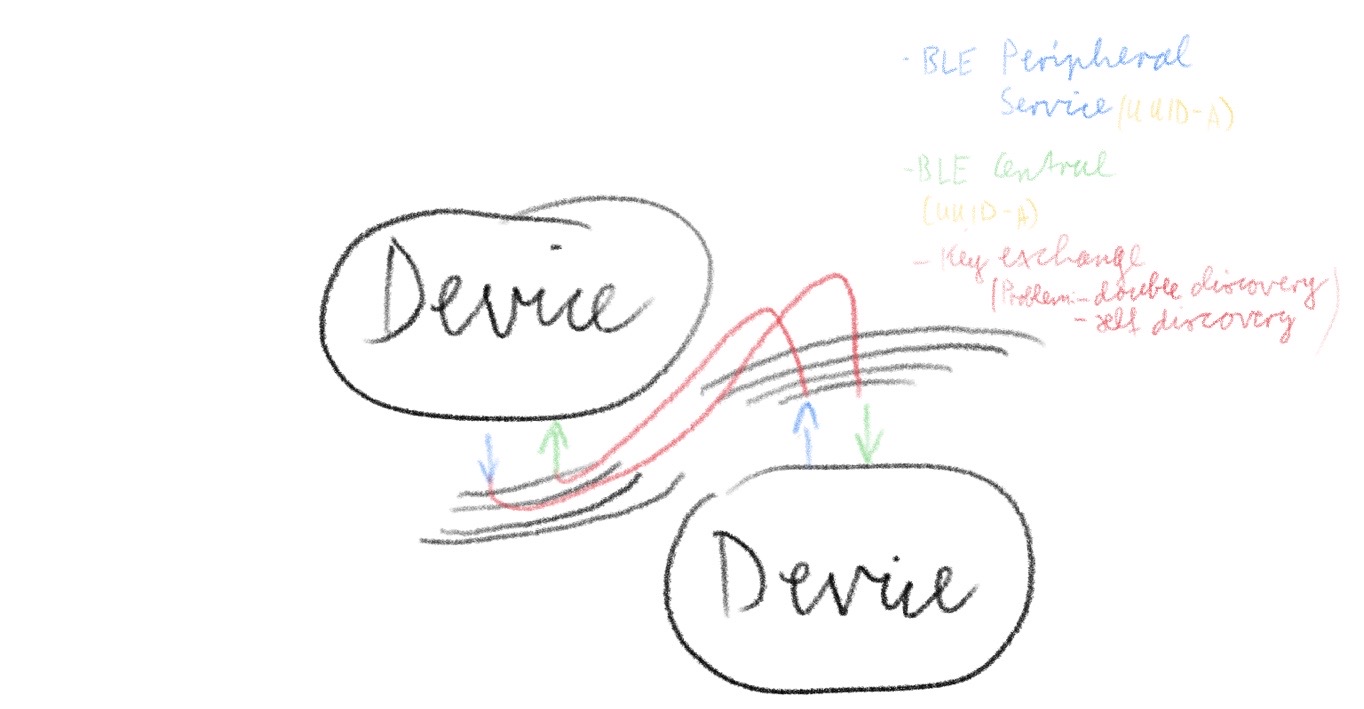 - BLE Peripheral
Service (UUID-A)
- BLE Central
(UUID-A)
- Key exchange
(Problem: - double discovery
- self discovery)
Device
Device